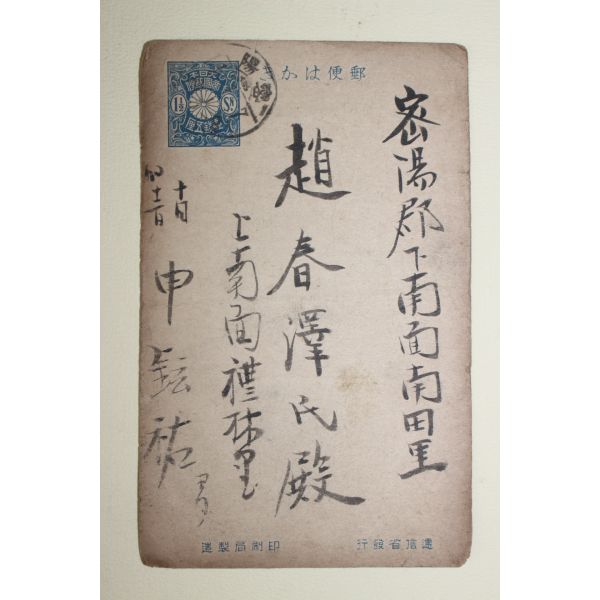 郵便はか
大日本
帝國郵便
1½ Sn
壹錢五厘
密陽郡下南面南田里
趙春澤氏殿
上南面禮林里
十月
十二日
申鉉祐
遞信省發行
印刷局製造